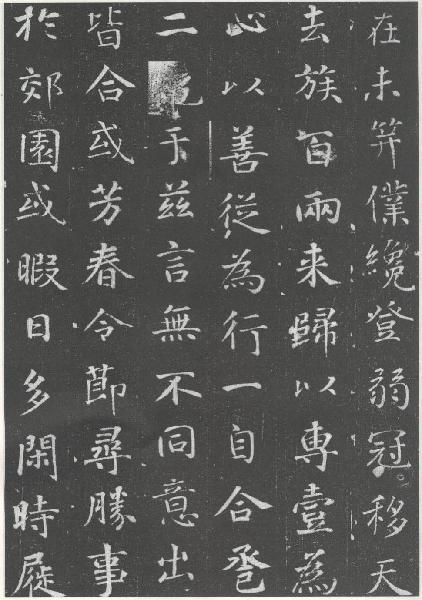 在未笄僕纔登弱冠移天
去族百兩来歸以專壹為
心以善從為行一自合巹
二于茲言無不同意出
皆合或芳春令節尋勝事
於郊園或暇日多閑時屣